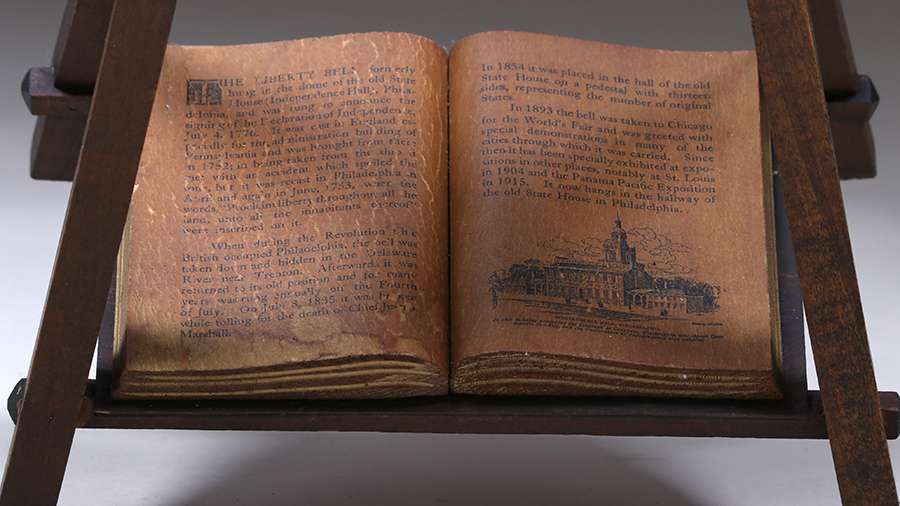 THE LIBERTY BELL formerly
hung in the dome of the old State
House (Independence Hall), Phila-
delphia, and was rung to announce the
signing of the Declaration of Independence,
July 4, 1776. It was cast in England es-
pecially for the administration building of
Pennsylvania and was brought from there
in 1752; in being taken from the ship it
met with an accident which spoiled the
tone, but it was recast in Philadelphia in
April and again in June, 1753, when the
words, liberty throughout all the
land, unto all the inhabitants thereof"
were inscribed on it.
When during the Revolution the
British occupied Philadelphia, the bell was
taken down and hidden in the Delaware
River near Trenton. Afterward, it was
returned to its old position and for many
years was rung annually on the Fourth
of July. On July 8, 1835 it was
while tolling for the death of Chief Justice
Marshall.
In 1854 it was placed in the hall of the old
State House on a pedestal with thirteen
sides, representing the number of original
States.
In 1893 the bell was taken to Chicago
for the World's Fair and was greeted with
special demonstrations in many of the
cities through which it was carried. Since
then it has been specially exhibited at expo-
sitions in other places, notably at St. Louis
in 1904 and the Panama Pacific Exposition
in 1915. It now hangs in the hallway of
the old State House in Philadelphia.